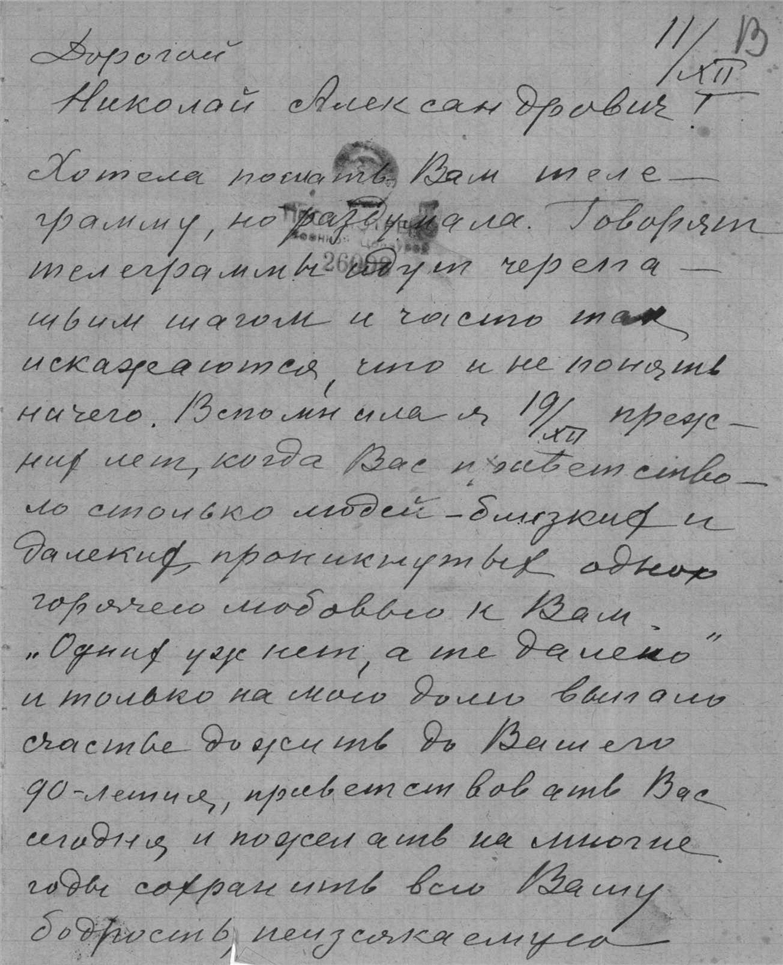 11/XII В
Дорогой
Николай Александрович!
Хотела послать Вам теле-
грамму, но раздумала. Говорят
телеграммы идут черепа-
шьим шагом и часто так
искажаются, что и не понять
ничего. Вспомнила я 19/XII преж-
них лет, когда Вас приветство-
ло столько людей - близких и
далеких, проникнутых одною
горячею любовью к Вам.
„Одних уж нет, а те далеко"
и только на мою долю выпало
счастье дожить до Вашего
90-летия, приветствовать Вас
сегодня и пожелать на многие
годы сохранить всю Вашу
бодрость, неиссякаемую
26098